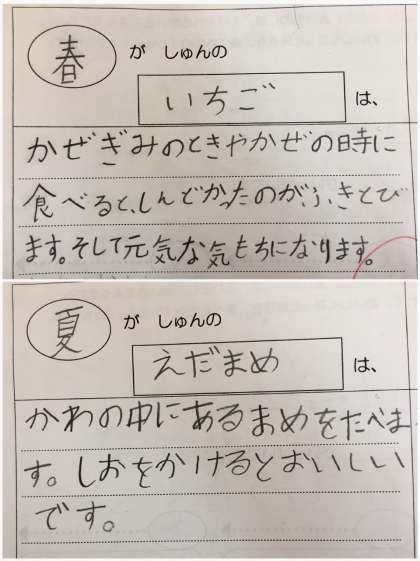 春 が しゅんの
いちご は、
かぜぎみのときやかぜの時に
食べると、しんどかったのが、ふきとび
ます。そして元気な気もちになります。
夏 が しゅんの
えだまめ は、
かわの中にあるまめをたべま
す。しおをかけるとおいしい
です。